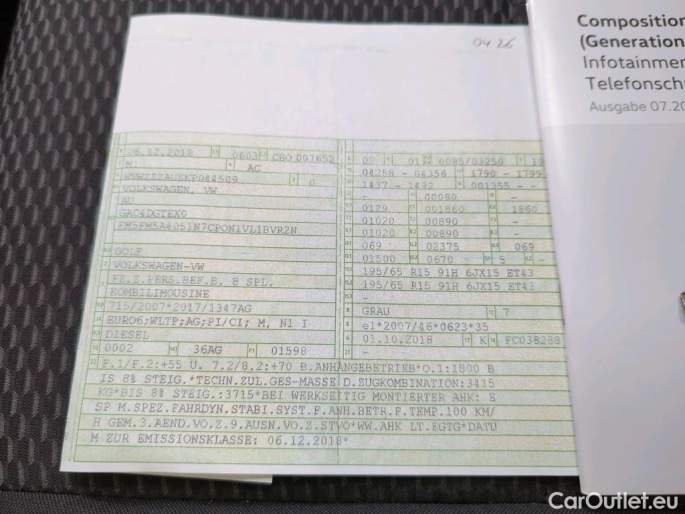 04 26
Composition
(Generation
Infotainmen
Telefonsch
Ausgabe 07.20
06.12.2018 0603 CBO
M1 AC
VOLKSWAGEN, VW
AU
GOLF
VOLKSWAGEN-VW
FZ.Z.PERS.BEF.B. 8 SPL.
KOMBILIMOUSINE
715/2007*2017/1347AG
EURO6;WLTP;AG;PI/CI; M, N1 I
DIESEL
0002 36AG 01598
01 0085/03250
04258 - 04356 1790 - 1799
1437 - 1492 001355 - -
- 00080 -
0129 001860 1860
01020 00890 -
01020 00890 -
069 02375 069
01500 0670 5 -
195/65 R15 91H 6JX15 ET43
195/65 R15 91H 6JX15 ET43
-
GRAU 7
e1*2007/46*0623*35
03.10.2018 K
F.1/F.2:+55 U. 7.2/8.2:+70 B.ANHÄNGEBETRIEB*O.1:1800 B
IS 8% STEIG.*TECHN.ZUL.GES-MASSE D.ZUGKOMBINATION:3415
KG*BIS 8% STEIG.:3715*BEI WERKSEITIG MONTIERTER AHK: E
SP M.SPEZ.FAHRDYN.STABI.SYST.F.ANH.BETR.F.TEMP.100 KM/
H GEM.3.AEND.VO.Z.9.AUSN.VO.Z.STVO*WW.AHK LT.EGTG*DATU
M ZUR EMISSIONSKLASSE: 06.12.2018*
CarOutlet.eu